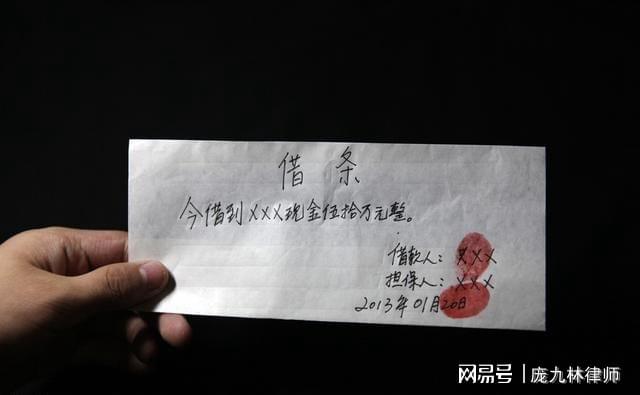 借条
今借到XXX现金伍拾万元整。
借款人：XXX
担保人：XXX
2013年01月20日
网易号 | 庞九林律师